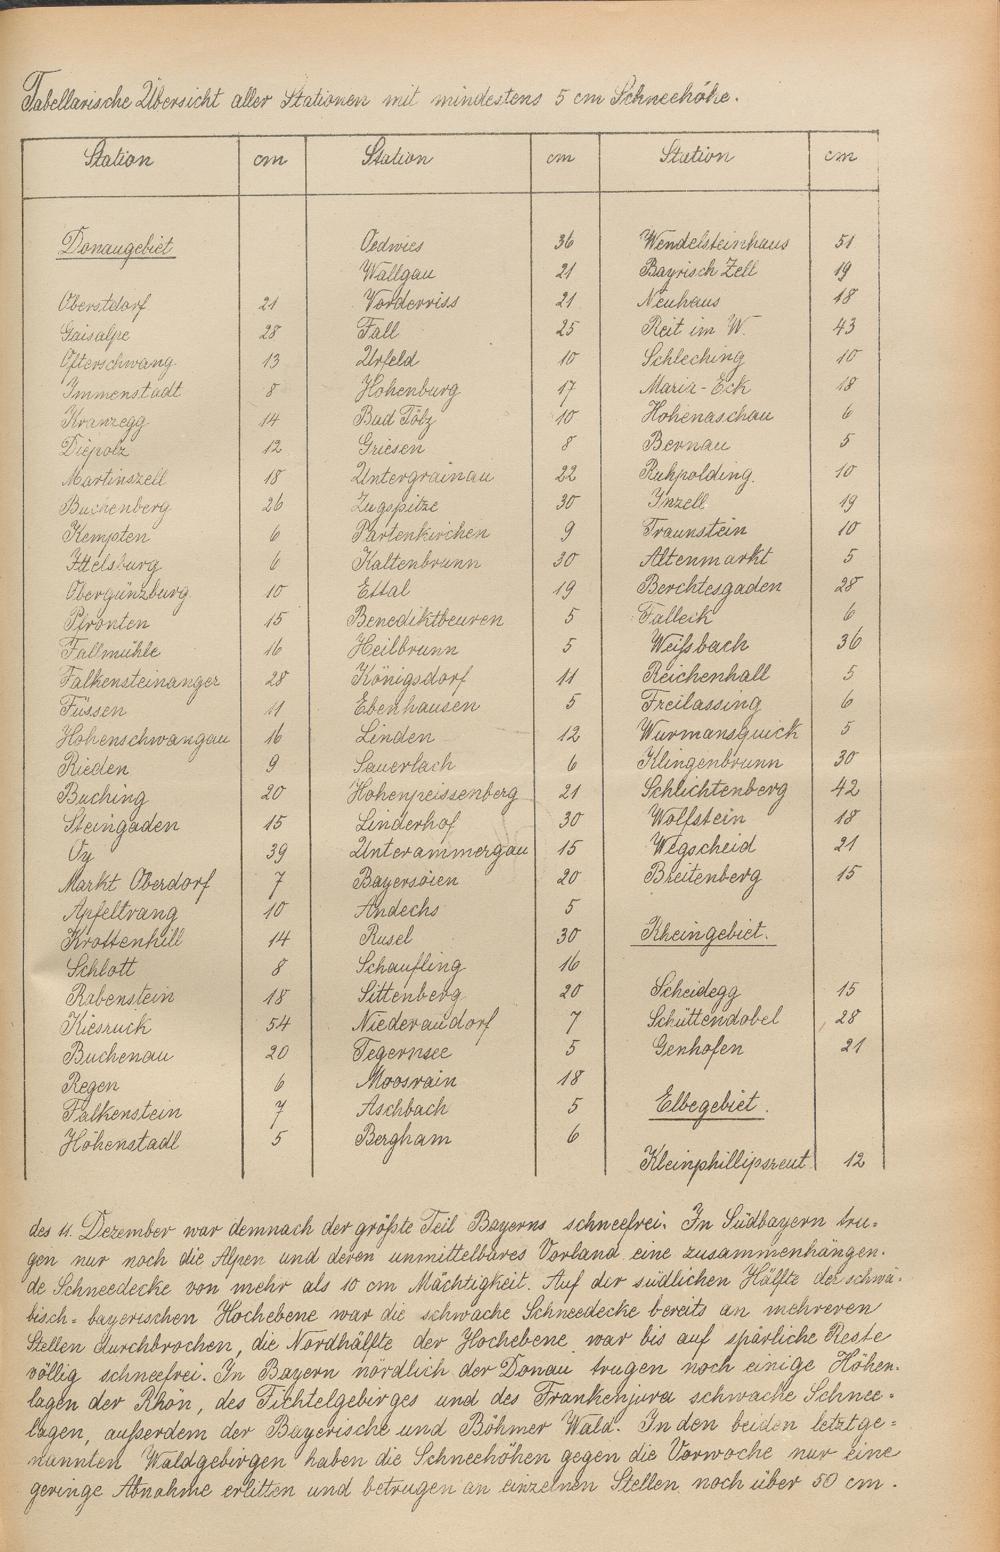 Tabellarische Übersicht aller Stationen mit mindestens 5 cm Schneehöhe.
Station cm Station cm Station cm
Donaugebiet
Oberstdorf 21
Gaisalpe 28
Ofterschwang 13
Immenstadt 8
Kranzegg 14
Diepolz 12
Martinszell 18
Buchenberg 26
Kempten 6
Ittelsburg 6
Obergünzburg 10
Pfronten 15
Fallmühle 16
Falkensteinanger 28
Füssen 11
Hohenschwangau 16
Rieden 9
Buching 20
Steingaden 15
Oy 39
Markt Oberdorf 7
Apfeltrang 10
Krottenhill 14
Schlott 8
Rabenstein 18
Kiesruck 54
Buchenau 20
Regen 6
Falkenstein 7
Höhenstadl 5
Oedwies 36
Wallgau 21
Vorderriss 21
Fall 25
Urfeld 10
Hohenburg 17
Bad Tölz 10
Griesen 8
Untergrainau 22
Zugspitze 30
Partenkirchen 9
Kaltenbrunn 30
Ettal 19
Benediktbeuren 5
Heilbrunn 5
Königsdorf 11
Ebenhausen 5
Linden 12
Sauerlach 6
Hohenpeissenberg 21
Linderhof 30
Unterammergau 15
Bayersoien 20
Andechs 5
Rusel 30
Schaufling 16
Sittenberg 20
Niederaudorf 7
Tegernsee 5
Moosrain 18
Aschbach 5
Bergham 6
Wendelsteinhaus 51
Bayrisch Zell 19
Neuhaus 18
Reit im W. 43
Schleching 10
Maria-Eck 18
Hohenaschau 6
Bernau 5
Ruhpolding. 10
Inzell 19
Traunstein 10
Altenmarkt 5
Berchtesgaden 28
Falleik 6
Weißbach 36
Reichenhall 5
Freilassing 6
Wurmansquick 5
Klingenbrunn 30
Schlichtenberg 42
Wolfstein 18
Wegscheid 21
Breitenberg 15
Rheingebiet.
Scheidegg 15
Schüttendobel 28
Genhofen 21
Elbegebiet.
Kleinphillipsreut 12
des 11. Dezember war demnach der größte Teil Bayerns schneefrei. In Südbayern tru-
gen nur noch die Alpen und deren unmittelbares Vorland eine zusammenhängen-
de Schneedecke von mehr als 10 cm Mächtigkeit. Auf der südlichen Hälfte der schwä-
bisch-bayerischen Hochebene war die schwache Schneedecke bereits an mehreren
Stellen durchbrochen, die Nordhälfte der Hochebene war bis auf spärliche Reste
völlig schneefrei. In Bayern nördlich der Donau trugen noch einige Höhen-
lagen der Rhön, des Fichtelgebirges und des Frankenjura schwache Schnee-
lagen, außerdem der Bayerische und Böhmer Wald. In den beiden letztge-
nannten Waldgebirgen haben die Schneehöhen gegen die Vorwoche nur eine
geringe Abnahme erlitten und betrugen an einzelnen Stellen noch über 50 cm.